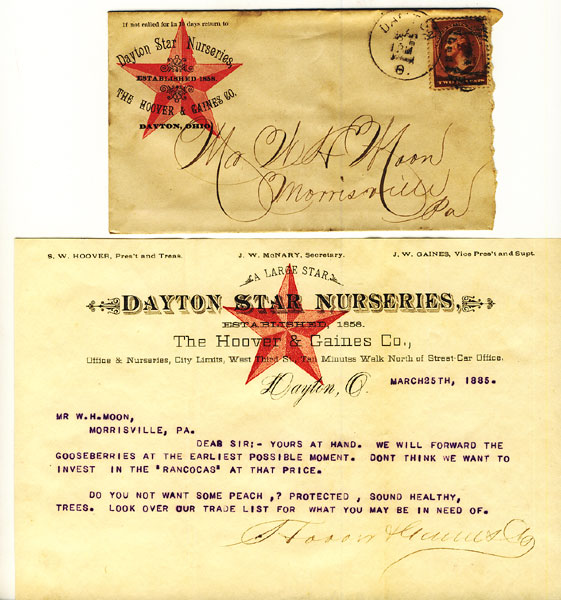 If not called for in 10 days return to
Dayton Star Nurseries,
ESTABLISHED 1858.
THE HOOVER & GAINES CO.
DAYTON, OHIO.
Mr W H Moon
Morrisville
Pa
S. W. HOOVER, Pres't and Treas. J. W. McNARY, Secretary. J. W. GAINES, Vice Pres't and Supt.
A LARGE STAR
DAYTON STAR NURSERIES,
ESTABLISHED, 1858.
The Hoover & Gaines Co.,
Office & Nurseries, City Limits, West Third St., Ten Minutes Walk North of Street-Car Office.
Dayton, O. MARCH25TH, 1885.
MR W.H.MOON,
MORRISVILLE, PA.
DEAR SIR:- YOURS AT HAND. WE WILL FORWARD THE
GOOSEBERRIES AT THE EARLIEST POSSIBLE MOMENT. DONT THINK WE WANT TO
INVEST IN THE "RANCOCAS" AT THAT PRICE.
DO YOU NOT WANT SOME PEACH ,? PROTECTED , SOUND HEALTHY,
TREES. LOOK OVER OUR TRADE LIST FOR WHAT YOU MAY BE IN NEED OF.
Hoover & Gaines Co